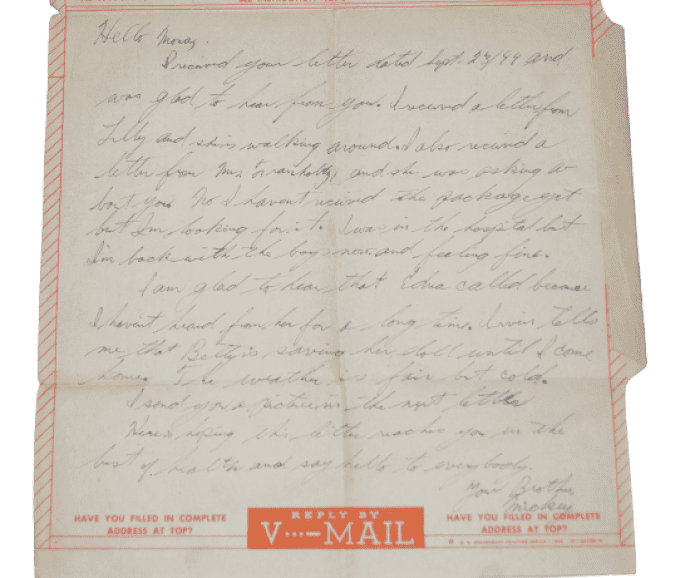 Hello
I received your letter dated Sept. 23/44 and
was glad to hear from you. I received a letter from
Lilly and she's walking around. I also received a
letter from Mrs. and she was asking a-
bout you. No I havent received the package yet
but I'm looking for it. I was in the hospital but
I'm back with the boys now and feeling fine.
I am glad to hear that Edna called because
I havent heard from her for a long time. Irvin tells
me that Betty is saving her doll until I come
home. The weather is fair but cold.
I send you a picture in the next letter
Heres hoping this letter reaches you in the
best of health and say hello to everybody.
Your Brother
Mickey
HAVE YOU FILLED IN COMPLETE
ADDRESS AT TOP?
REPLY BY
V···—MAIL
HAVE YOU FILLED IN COMPLETE
ADDRESS AT TOP?